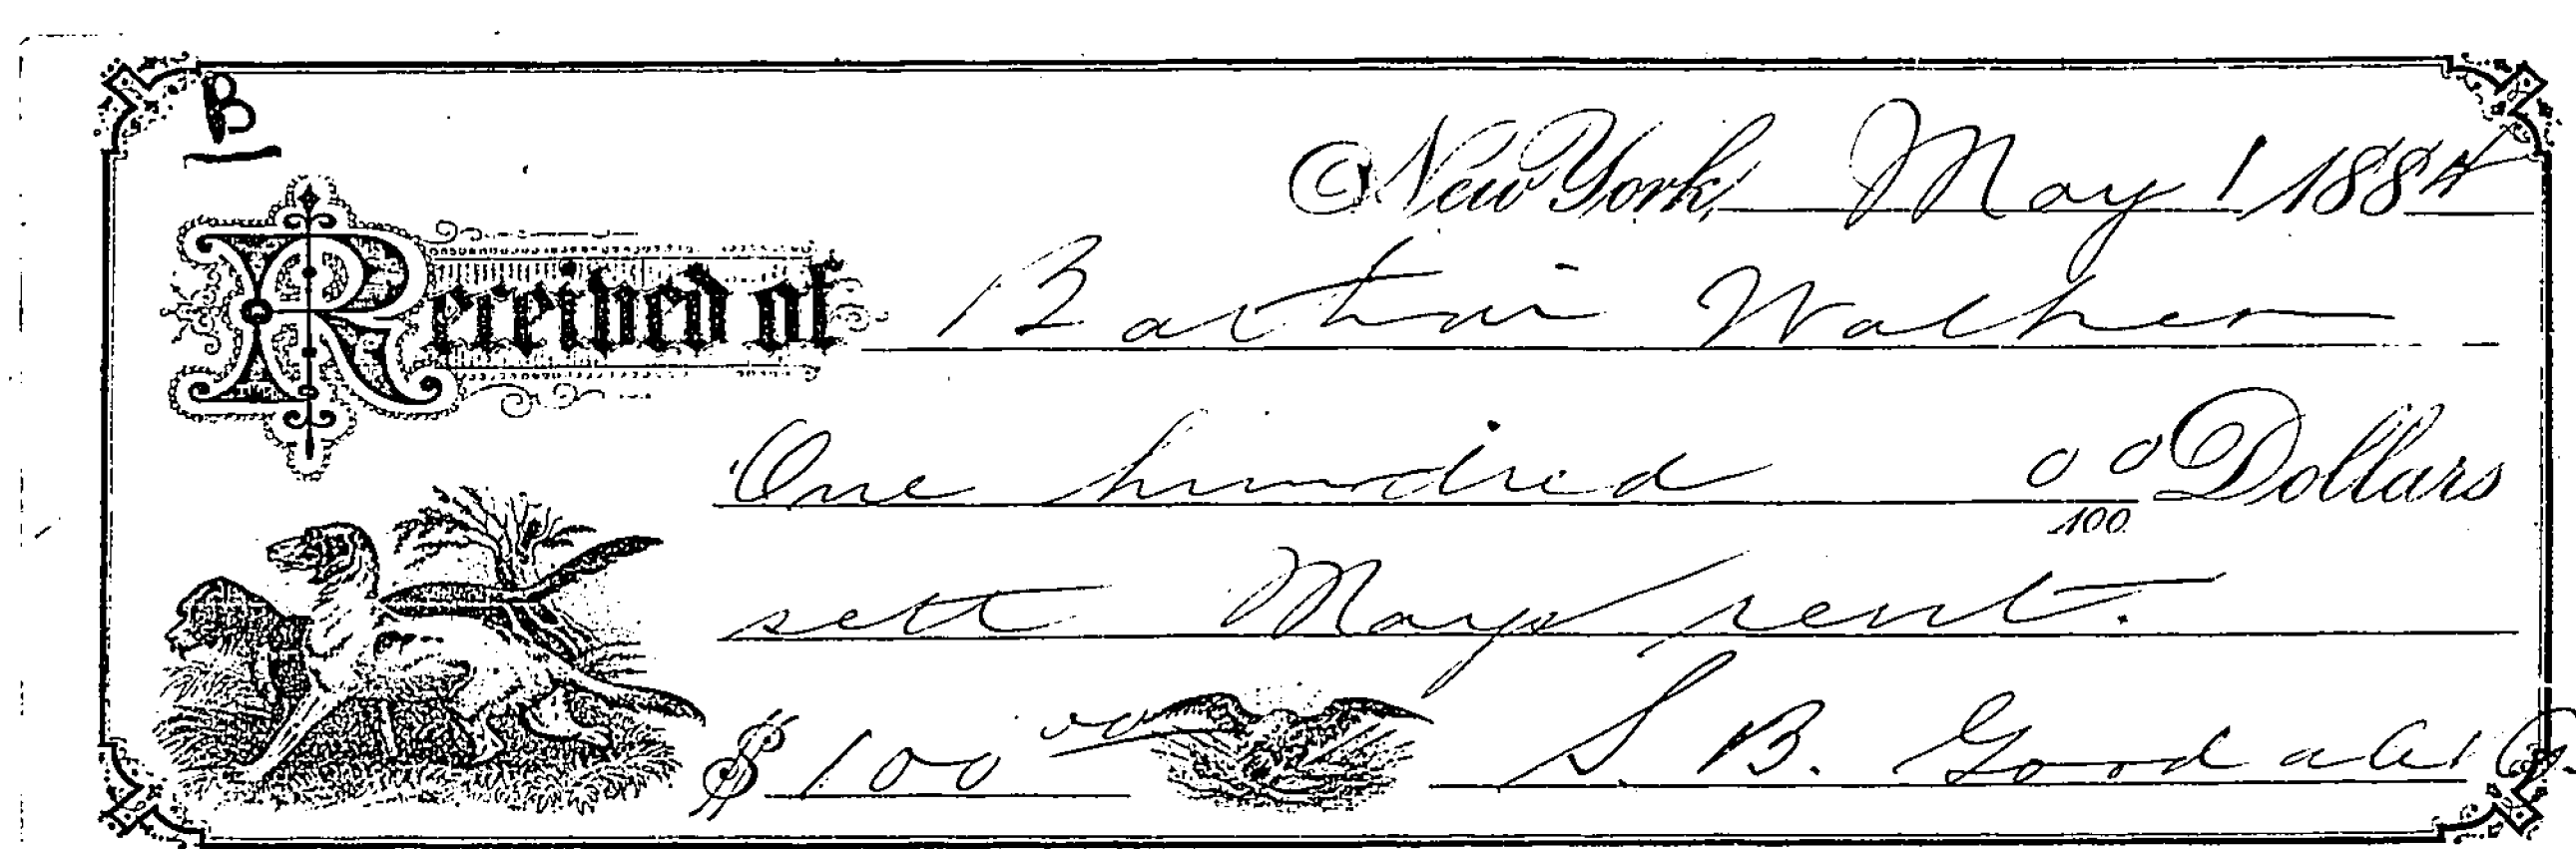 B
New York, May 1 1884
Received of Walker
One hundred 00/100 Dollars
sett Mays rent.
$100 00 S. B. Goodale